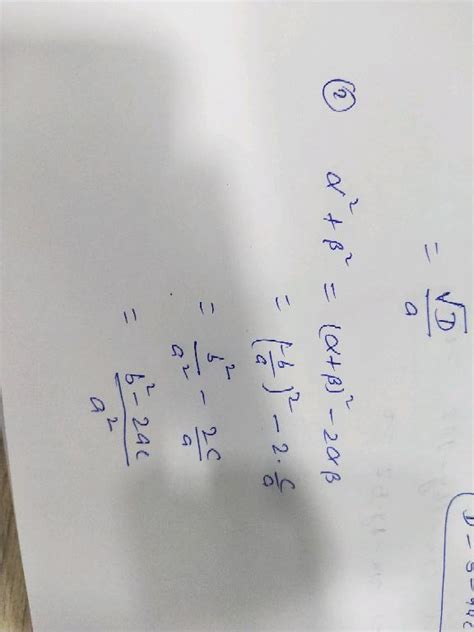 = √D/a
② α² + β² = (α+β)² - 2αβ
= (-b/a)² - 2·c/a
= b²/a² - 2c/a
= b² - 2ac/a²